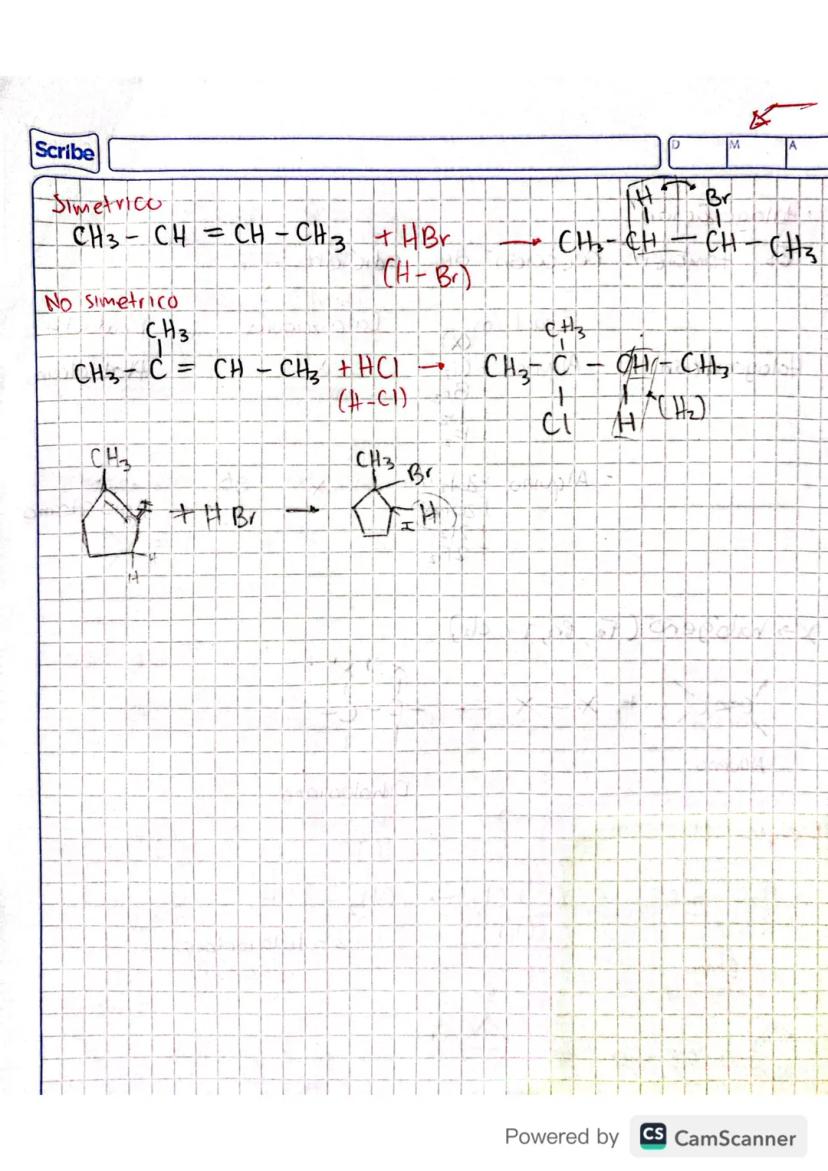 Scribe
D M A
Simetrico
H Br
CH3 - CH = CH - CH3 + HBr → CH3 - CH - CH - CH3
(H - Br)
No simetrico
CH3 CH3
CH3 - C = CH - CH3 + HCl → CH3 - C - CH - CH3
(H-Cl) Cl H (H2)
CH3 CH3 Br
+ H Br → H
H
Powered by CS CamScanner